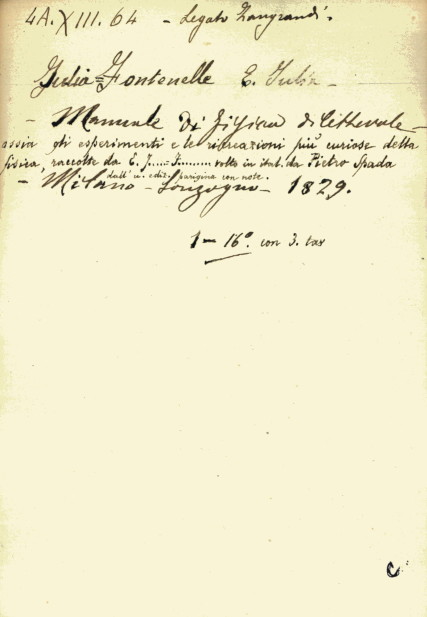 4A. XIII. 64 - Legato Zangrandi.
Julia=Fontenelle E. Julia -
- Manuale di fisica dilettevole
ossia gli esperimenti e le ricreazioni più curiose della
fisica, raccolte da E. J..... F........ volte in ital. da Pietro Spada
dall' u. ediz. parigina con note.
- Milano - Sonzogno - 1829.
1 - 16°. con 3. tav
C